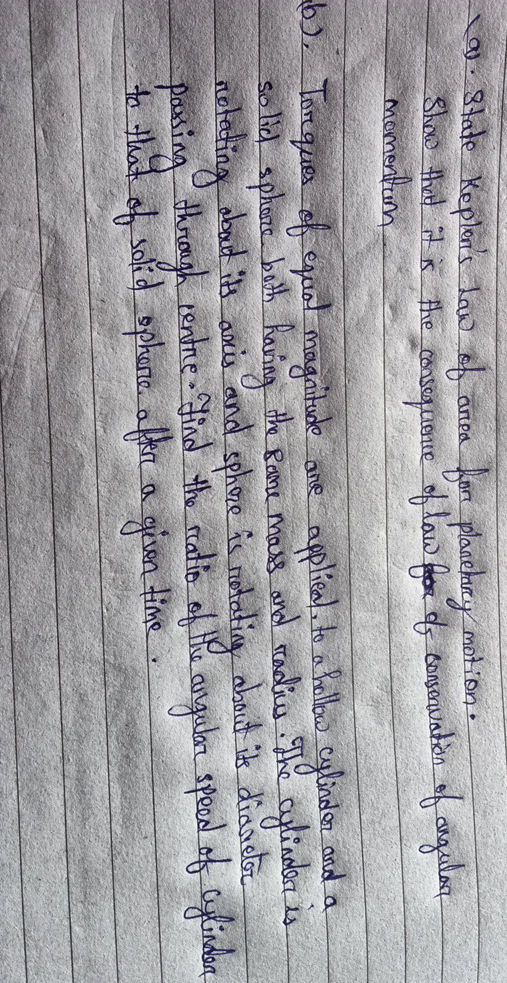 (a). State Kepler's Law of area for planetary motion.
Show that it is the consequence of law of conservation of angular
momentum
(b). Torques of equal magnitude are applied, to a hollow cylinder and a
solid sphere both having the same mass and radius. The cylinder is
rotating about its axis and sphere is rotating about its diameter
passing through centre. Find the ratio of the angular speed of cylinder
to that of solid sphere after a given time.